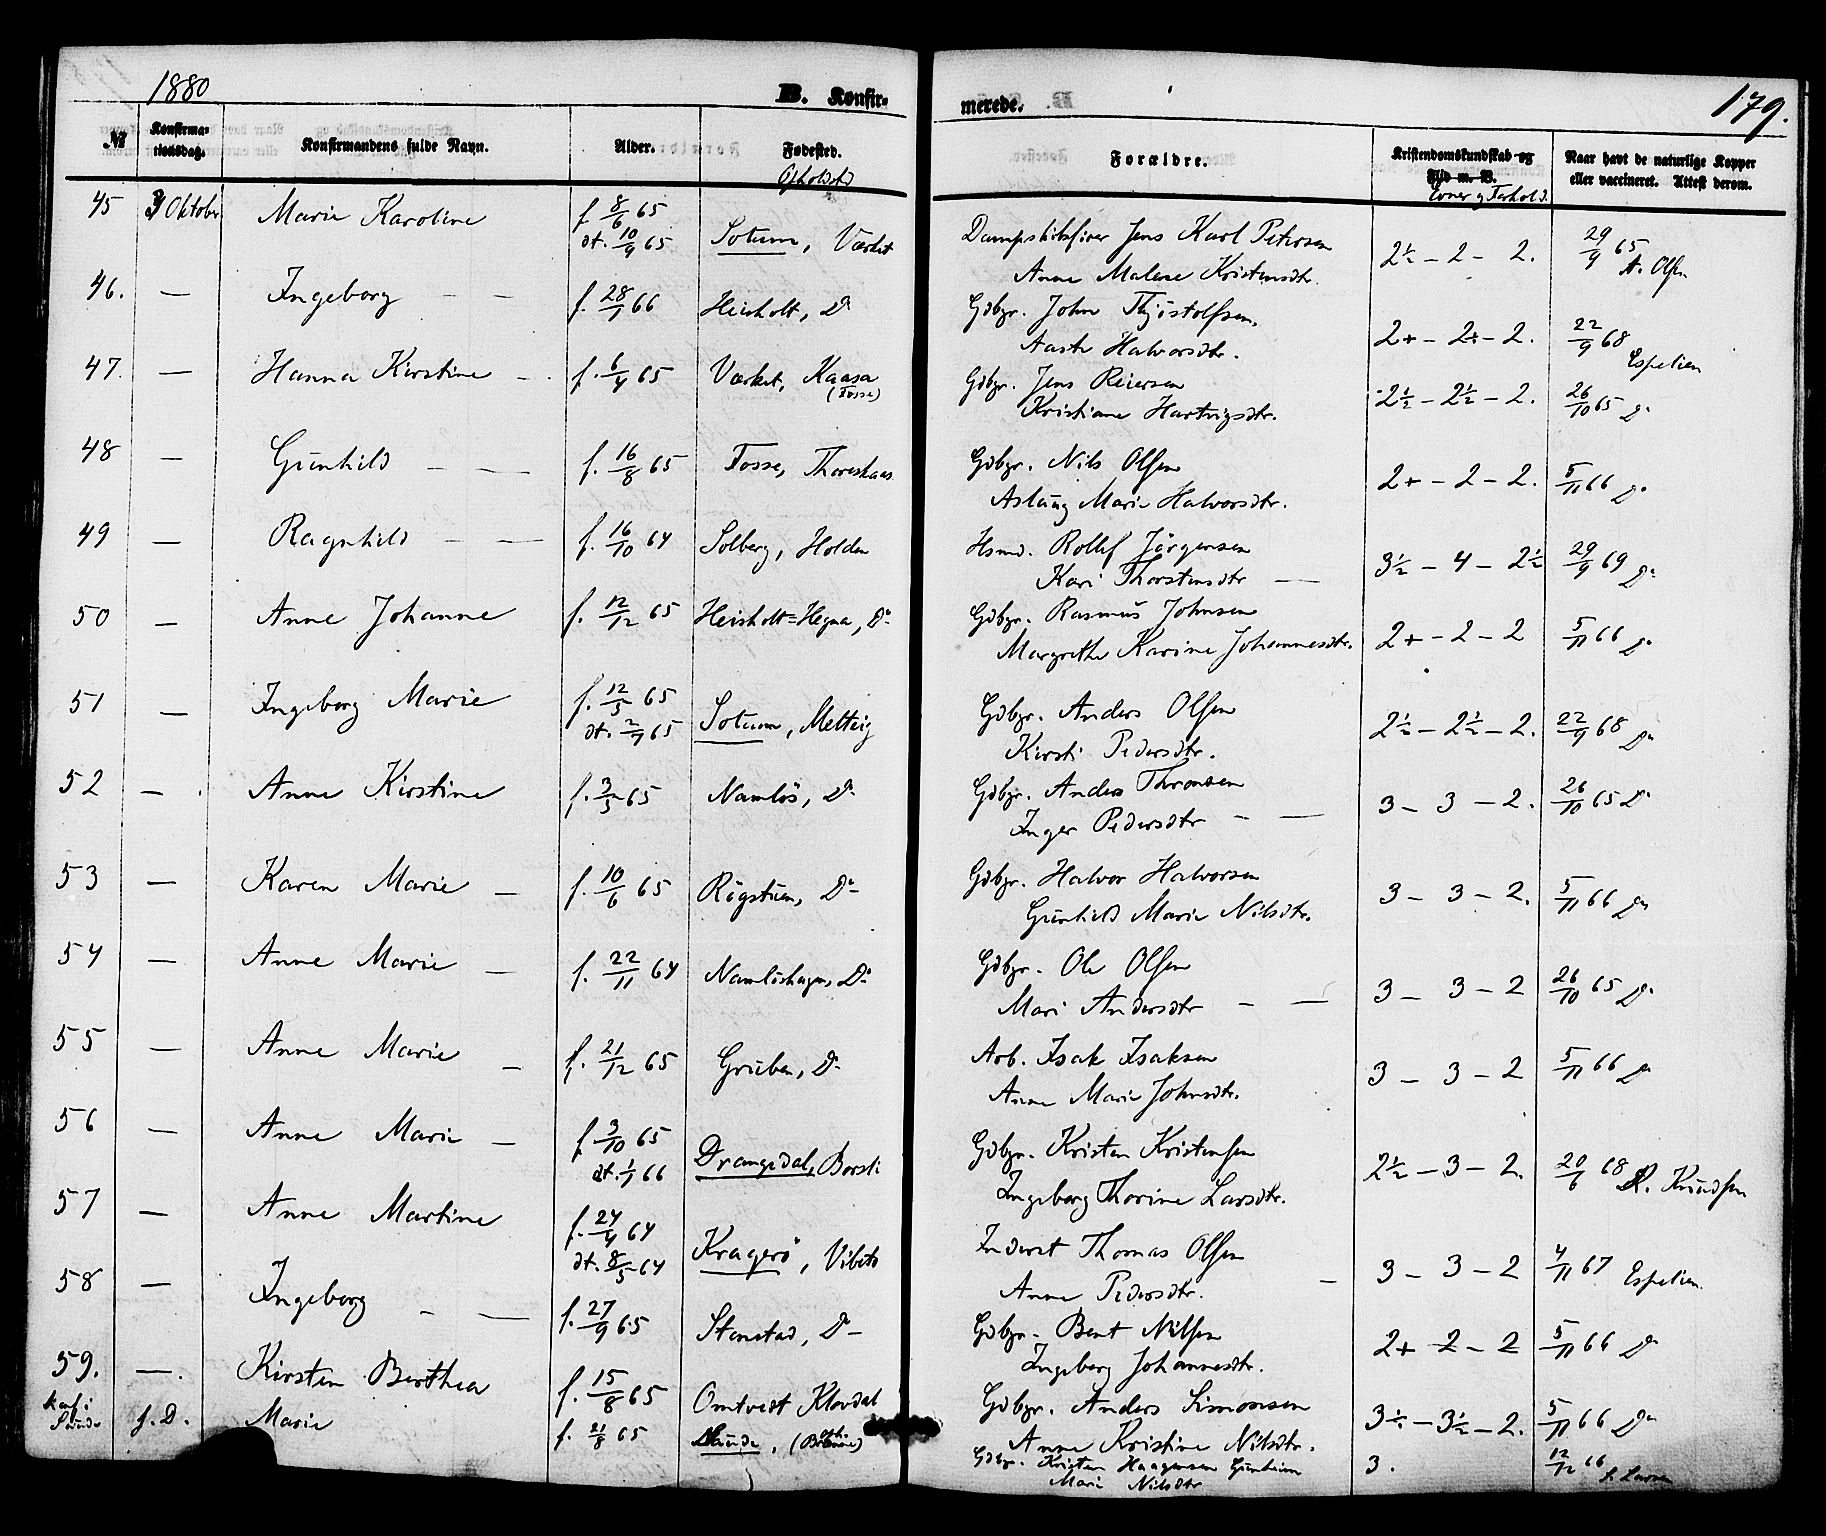 1880
B. Konfir-
merede.
179.
№
Konfirma-
tionsdag.
Konfirmandens fulde Navn.
Alder.
Fødested.
Opholdsted
Forældre.
Kristendomskundskab og
Flid m. V.
Evner og Forhold.
Naar havt de naturlige Kopper
eller vaccineret. Attest derom.
45 3 Oktober Marie Karoline f. 8/6 65 Dampskibsfører Jens Karl Petersen 29/9 65
dt. 10/9 65 Sotum, Værket Anne Malene Kristensdtr. 2½ - 2 - 2. A. Olsen
46. — Ingeborg — — f. 28/1 66 Heisholt, Do Gdbgr. John Thjøstolfsen. 22/9 68
Aaste Halvorsdtr. 2+ - 2+ - 2. Espelien
47. — Hanna Kirstine — f. 6/4 65 Værket, Kaasa Gdbgr. Jens Reiersen
(Fosse) Kristiane Hartvigsdtr. 2½ - 2½ - 2. 26/10 65 Do
48 — Gunhild — — f. 16/8 65 Fosse, Thoreskaas Gdbgr. Nils Olsen
Aslaug Marie Halvorsdtr. 2+ - 2 - 2. 5/11 66 Do
49 — Ragnhild — — f. 16/10 64 Solberg, Holden Hsmd. Rollef Jörgensen
Kari Thorstensdtr — 3½ - 4 - 2½ 29/9 69 Do
50 — Anne Johanne f. 12/12 65 Heisholt=Hegna, Do Gdbgr. Rasmus Johnsen
Margrethe Karine Johannesdtr. 2+ - 2 - 2 5/11 66 Do
51 — Ingeborg Marie f. 12/5 65 Gdbgr. Anders Olsen
dt. 2/7 65 Sotum, Melteig Kirsti Pedersdtr. 2½ - 2½ - 2. 22/9 68 Do
52 — Anne Kirstine f. 3/5 65 Namlös, Do Gdbgr. Anders Thronsen
Inger Pedersdtr — — 3 - 3 - 2. 26/10 65 Do
53 — Karen Marie — f. 10/6 65 Rögstuen, Do Gdbgr. Halvor Halvorsen
Gunhild Marie Nilsdtr. 3 - 3 - 2. 5/11 66 Do
54 — Anne Marie — f. 22/11 64 Namlöshagen, Do Gdbgr. Ole Olsen
Mari Andersdtr — — 3 - 3 - 2 26/10 65 Do
55 — Anne Marie — f. 21/12 65 Gruben, Do Arb. Isak Isaksen
Anne Marie Johnsdtr. 3 - 3 - 2 5/11 66 Do
56 — Anne Marie — f. 3/10 65 Gdbgr. Kristen Kristensen
dt. 1/1 66 Drangedal, Borsti Ingeborg Thorine Larsdtr. 2½ - 3 - 2. 20/6 68 R. Knudsen
57 — Anne Martine f. 24/4 64 Inderst Thomas Olsen
dt. 8/5 64 Kragerö, Vibeto Anne Pedersdtr. — 3 - 3 - 2 4/11 67 Espelien.
58 — Ingeborg — — f. 27/9 65 Stenstad, Do Gdbgr. Bent Nilsen
Ingeborg Johannesdtr. 2+ - 2 - 2 5/11 66 Do
59. — Kirsten Berthea f. 15/8 65 Omtvedt Klovdal Gdbgr. Anders Simonsen
Anne Kristine Nilsdtr. 3½ - 3½ - 2. 5/11 66 Do
konf. i
Lunde s. D. Marie f. 21/8 65 Lunde. Gdbgr. Kristen Haagensen Gunheim 3. 12/12 66
Mari Nilsdtr L. Larsen